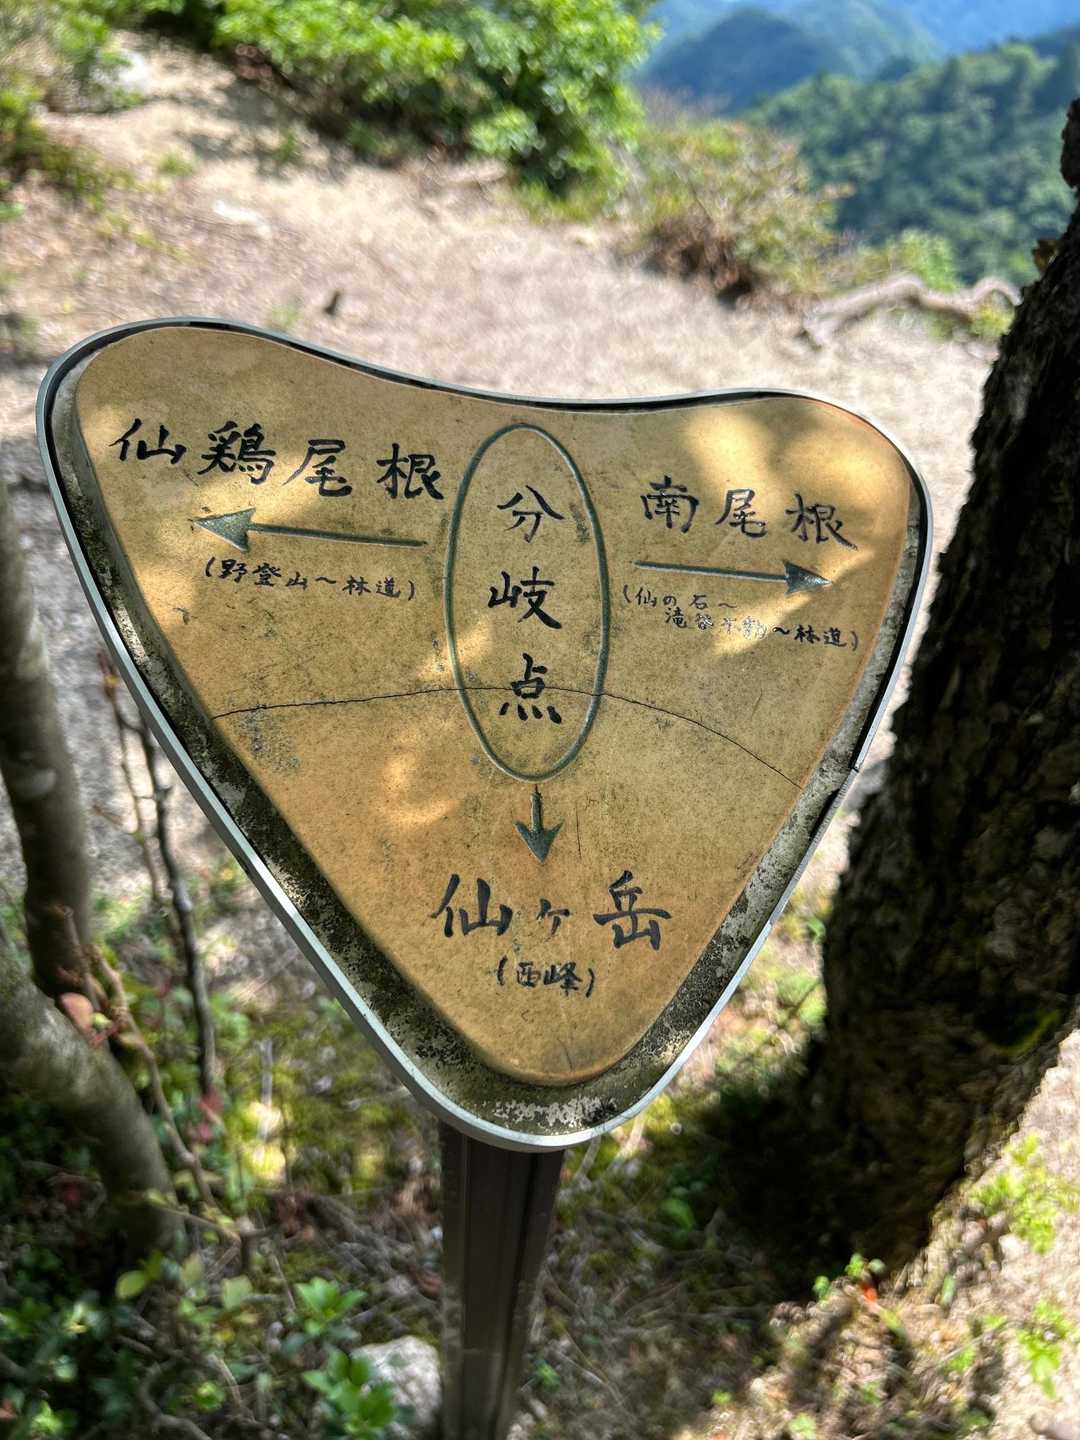 仙鶏尾根
(野登山～林道)
分岐点
南尾根
(仙の石～
滝～林道)
仙ヶ岳
(西峰)